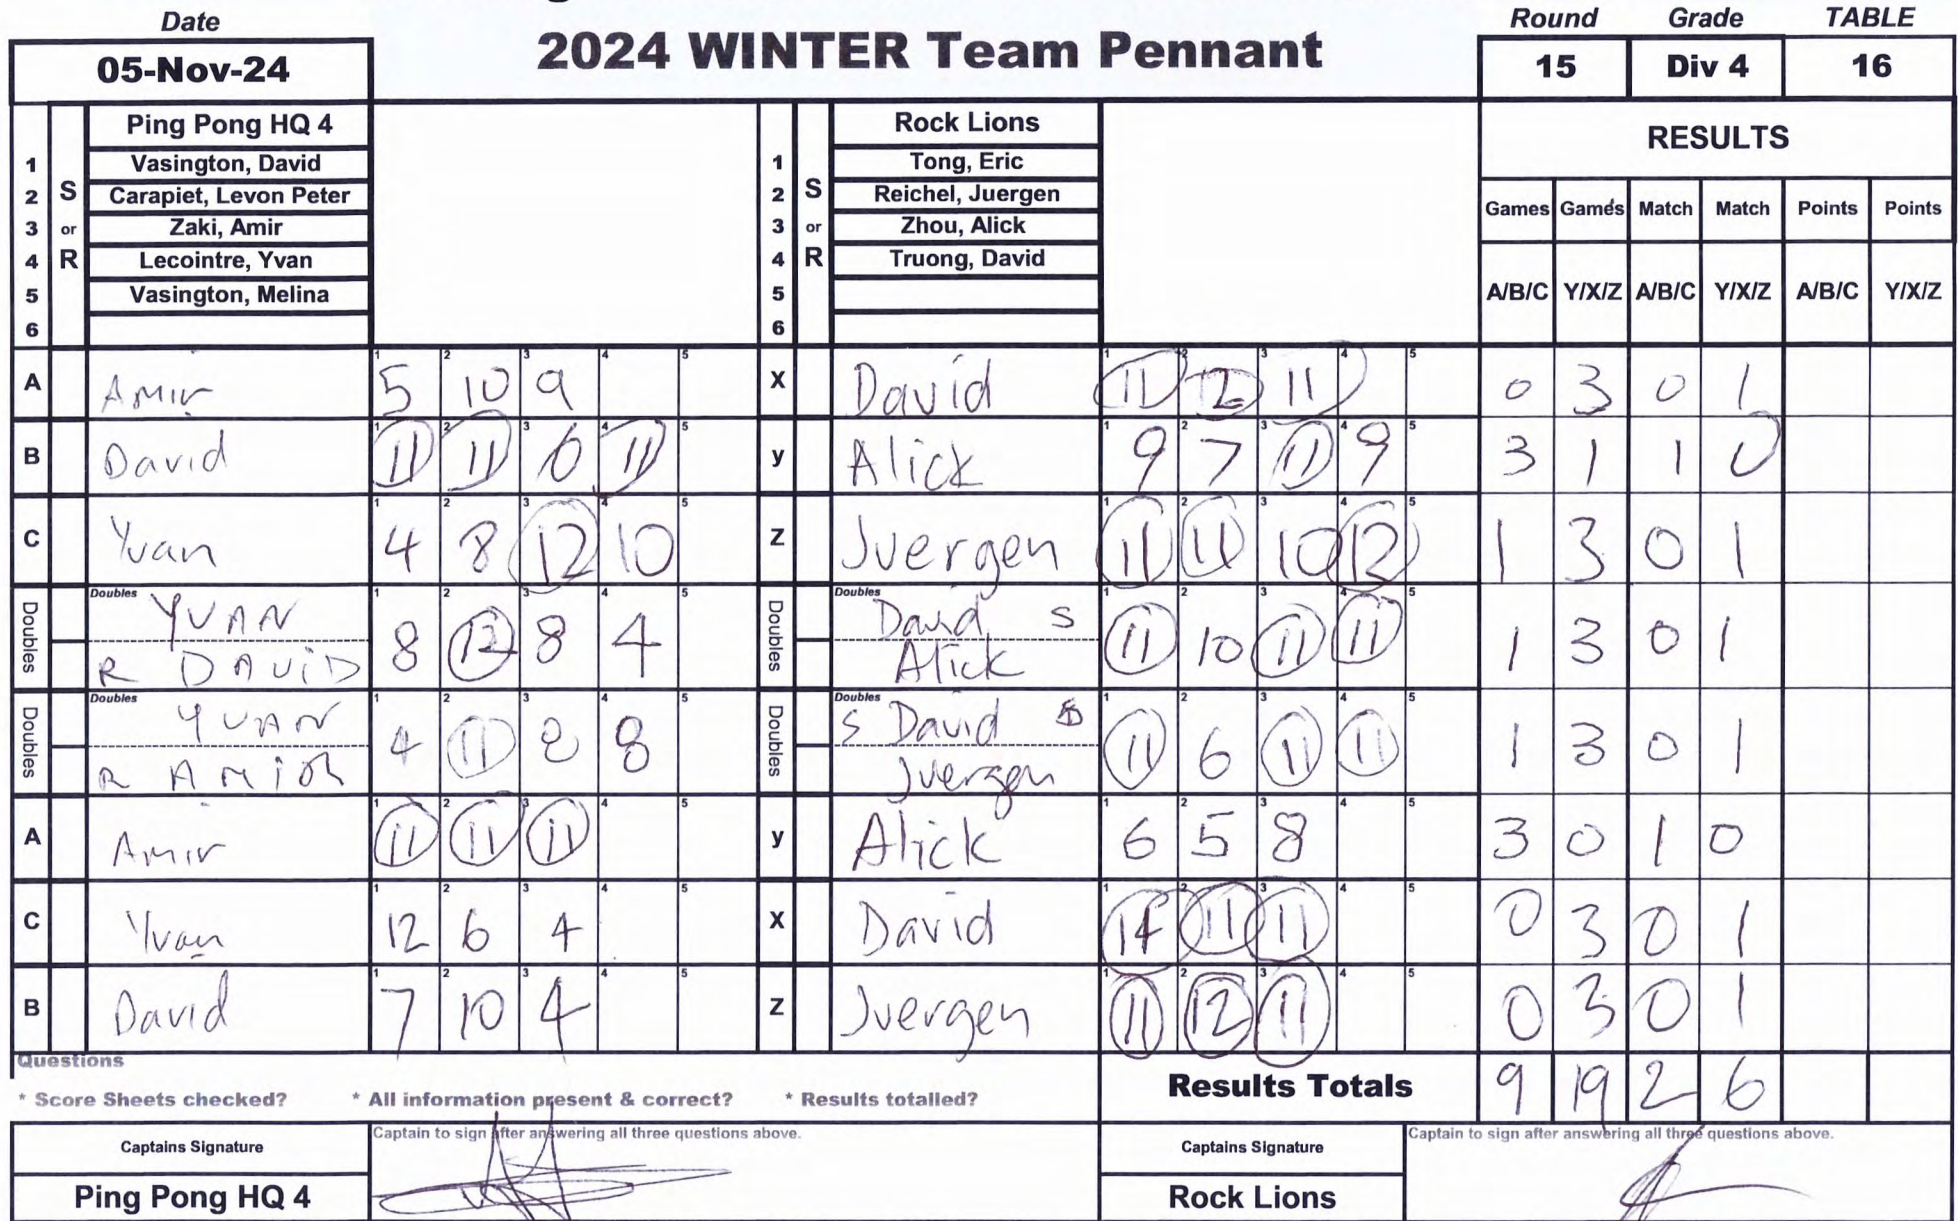 Date
2024 WINTER Team Pennant
Round Grade TABLE
05-Nov-24
15 Div 4 16
S or R
Ping Pong HQ 4
1 Vasington, David
2 Carapiet, Levon Peter
3 Zaki, Amir
4 Lecointre, Yvan
5 Vasington, Melina
6
S or R
Rock Lions
1 Tong, Eric
2 Reichel, Juergen
3 Zhou, Alick
4 Truong, David
5
6
RESULTS
Games Games Match Match Points Points
A/B/C Y/X/Z A/B/C Y/X/Z A/B/C Y/X/Z
A Amir 5 10 9 X David 11 12 11 0 3 0 1
B David 11 11 6 11 y Alick 9 7 11 9 3 1 1 0
C Yvan 4 8 12 10 Z Juergen 11 11 10 12 1 3 0 1
Doubles YVAN R DAVID 8 12 8 4 Doubles David S Alick 11 10 11 11 1 3 0 1
Doubles YVAN R AMIOR 4 11 8 8 Doubles S David Juergen 11 6 11 11 1 3 0 1
A Amir 11 11 11 y Alick 6 5 8 3 0 1 0
C Yvan 12 6 4 X David 14 11 11 0 3 0 1
B David 7 10 4 Z Juergen 11 12 11 0 3 0 1
Questions
* Score Sheets checked? * All information present & correct? * Results totalled?
Results Totals 9 19 2 6
Captains Signature
Captain to sign after answering all three questions above.
Captains Signature
Captain to sign after answering all three questions above.
Ping Pong HQ 4
Rock Lions